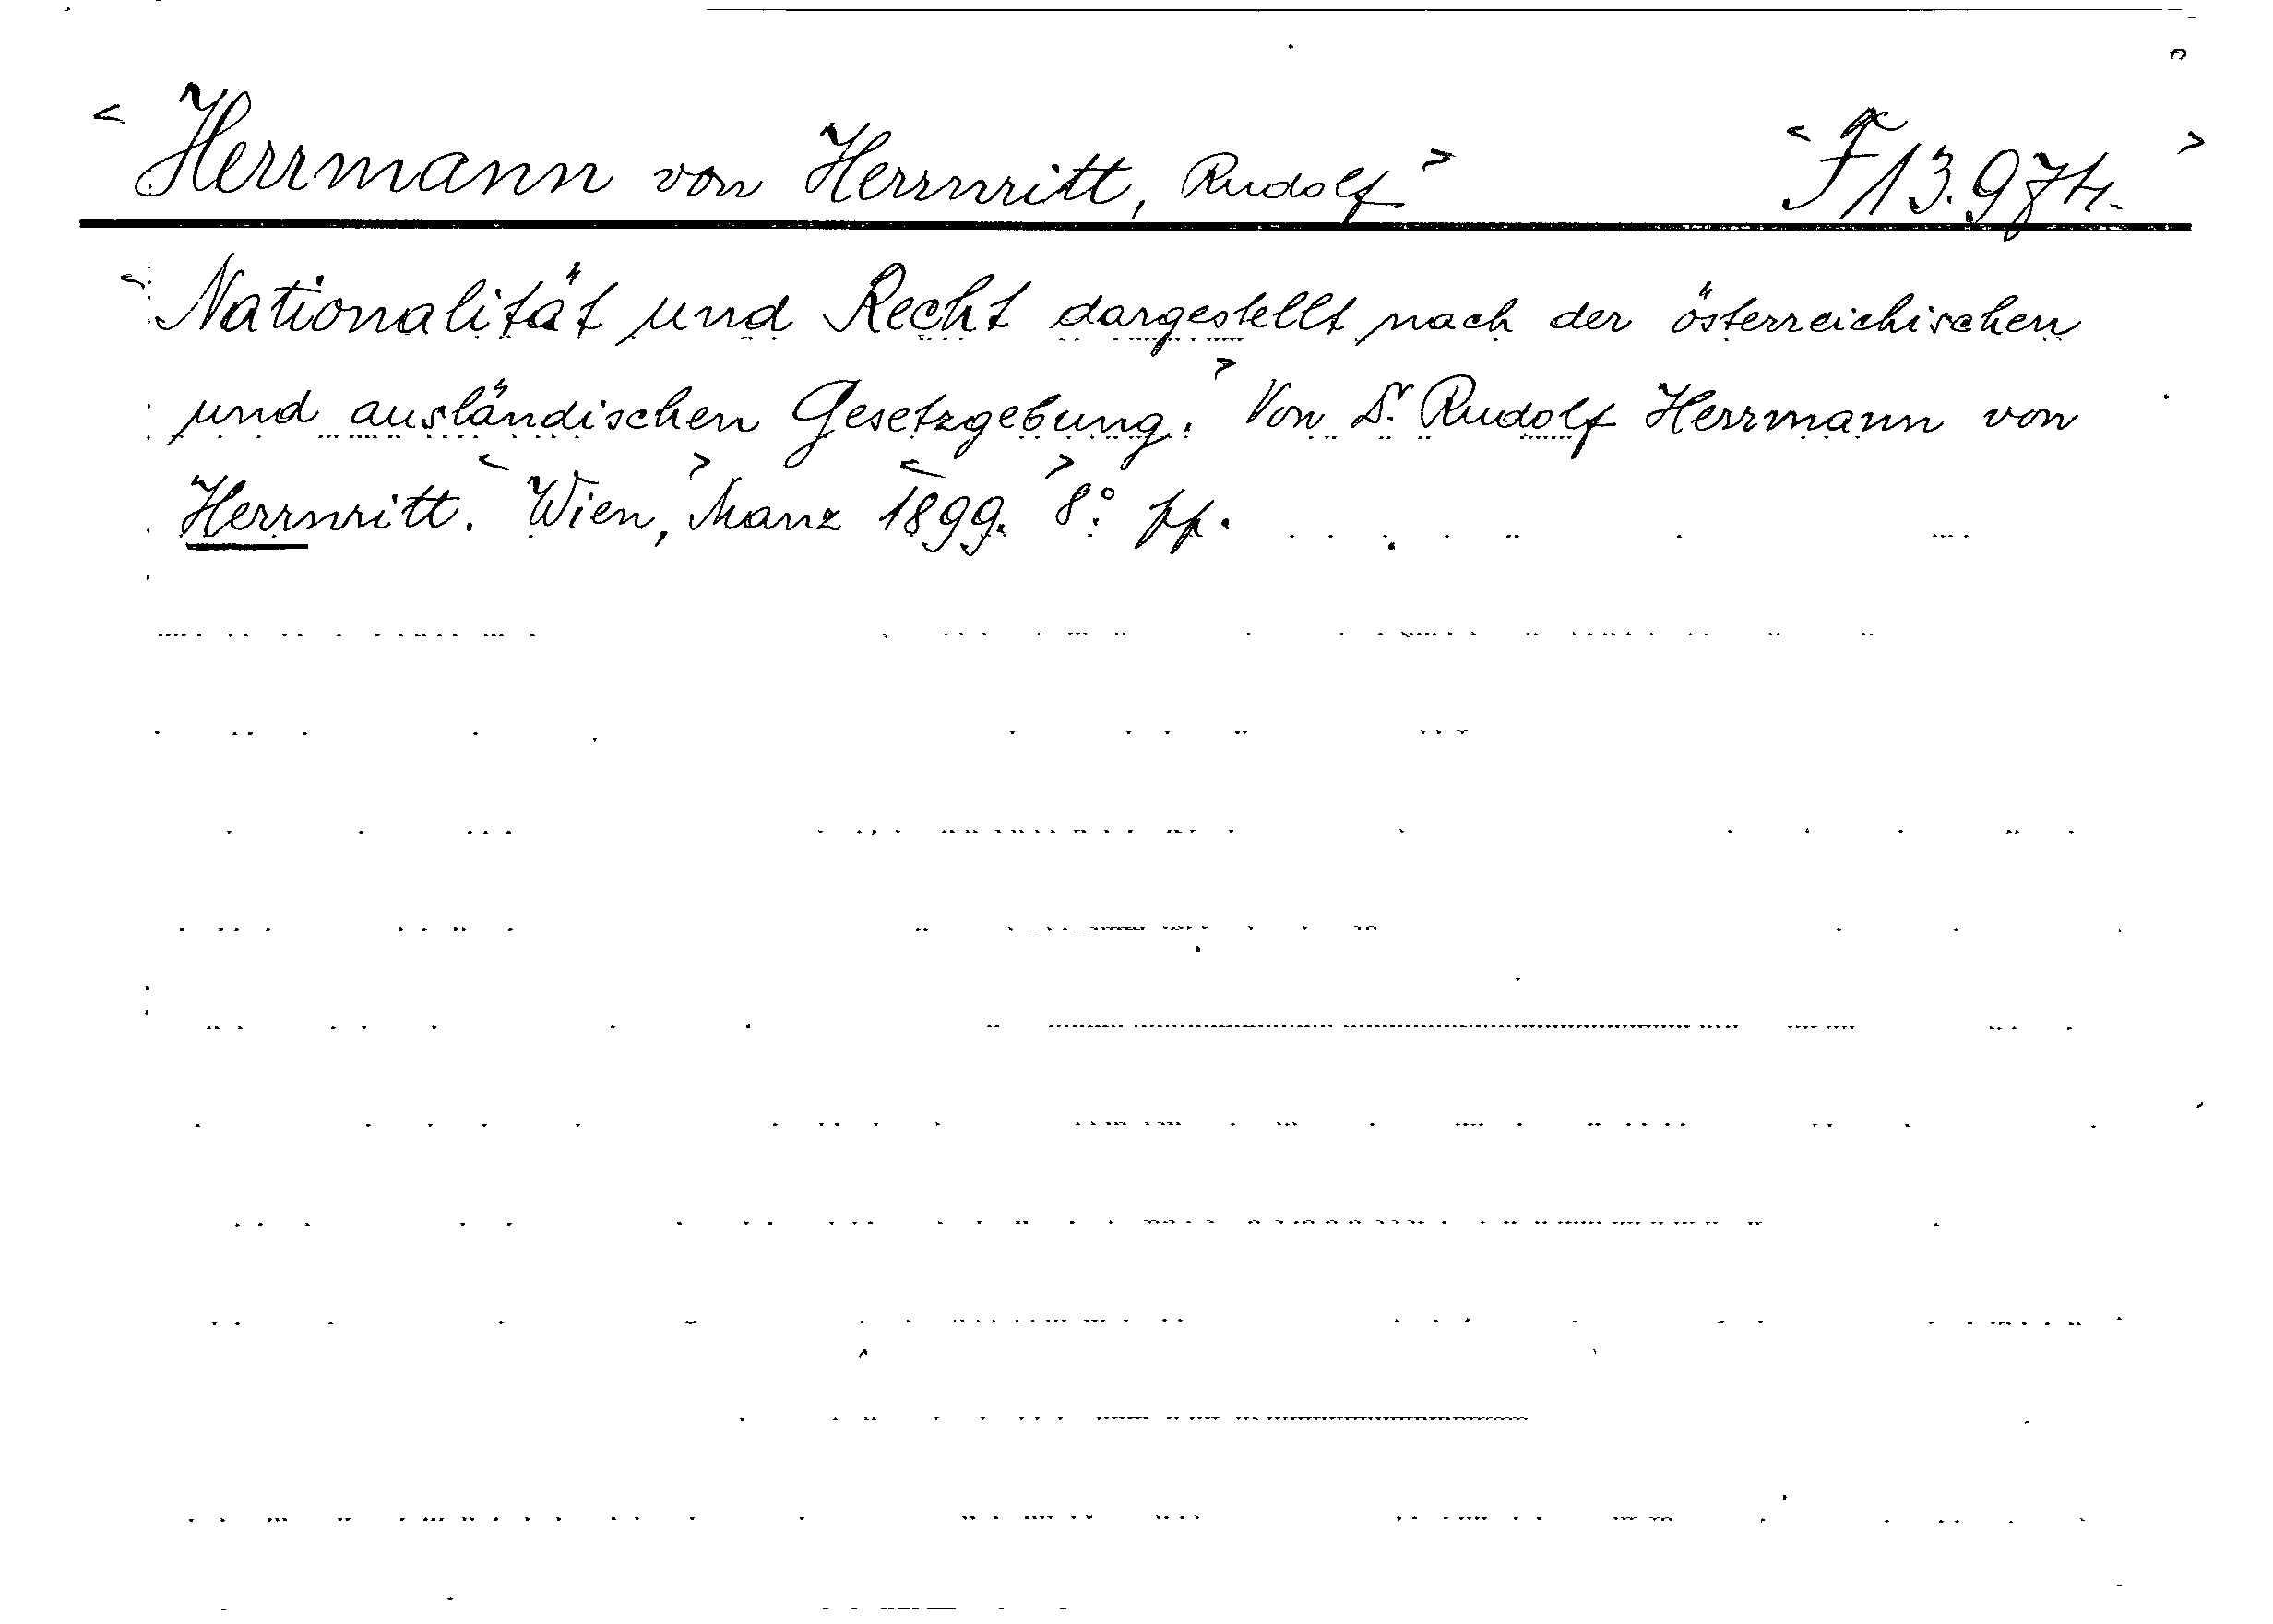 < Herrmann von Herrnritt, Rudolf > < F 13.974. >
< Nationalität und Recht dargestellt nach der österreichischen
und ausländischen Gesetzgebung. > Von Dr. Rudolf Herrmann von
Herrnritt. < Wien, > Manz < 1899. > 8° pp.